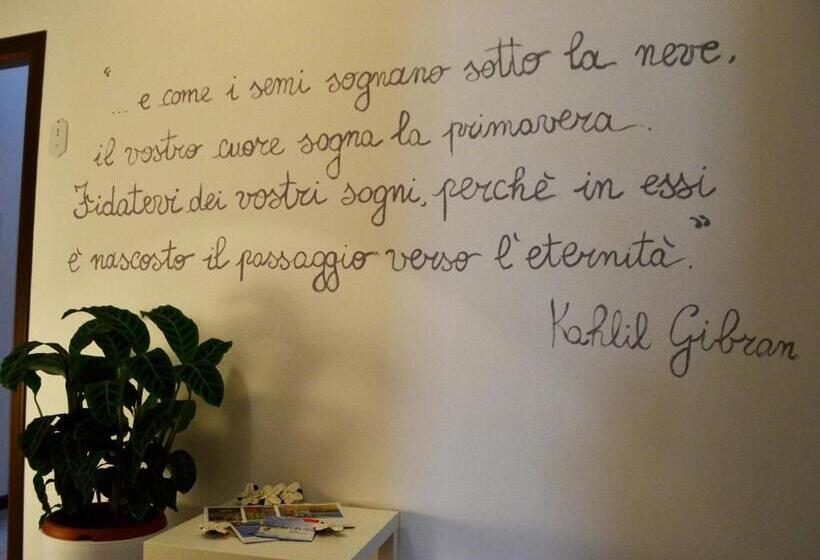 “ ... e come i semi sognano sotto la neve,
il vostro cuore sogna la primavera.
Fidatevi dei vostri sogni, perchè in essi
è nascosto il passaggio verso l'eternità.”
Kahlil Gibran